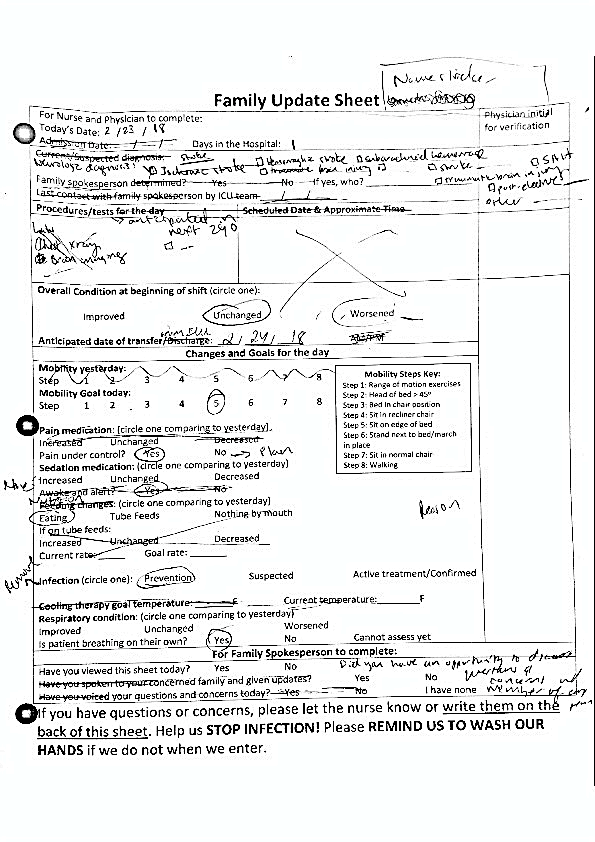 Name sticker
Family Update Sheet
For Nurse and Physician to complete:
Physician initial
for verification
Today's Date: 2 / 23 / 18
Admission Date: / / Days in the Hospital: 1
Current/Suspected diagnosis: Stroke
Neurology diagnosis: Ischemic stroke hemorrhagic stroke subarachnoid hemorrhage
traumatic brain injury
SAH
Family spokesperson determined? Yes No If yes, who?
Last contact with family spokesperson by ICU team: / /
other
Procedures/tests for the day Scheduled Date & Approximate Time
anticipated in
next 24°
Labs
Chest xray
Brain imaging
Overall Condition at beginning of shift (circle one):
Improved Unchanged Worsened
from ICU
Anticipated date of transfer/Discharge: 2 / 24 / 18
Changes and Goals for the day
Mobility yesterday:
Step 1 2 3 4 5 6 7 8
Mobility Goal today:
Step 1 2 3 4 5 6 7 8
Mobility Steps Key:
Step 1: Range of motion exercises
Step 2: Head of bed > 45°
Step 3: Bed in chair position
Step 4: Sit in recliner chair
Step 5: Sit on edge of bed
Step 6: Stand next to bed/march
in place
Step 7: Sit in normal chair
Step 8: Walking
Pain medication: (circle one comparing to yesterday)
Increased Unchanged Decreased
Pain under control? Yes No → Plan
Sedation medication: (circle one comparing to yesterday)
Increased Unchanged Decreased
Awake and alert? Yes No
Nutrition
Feeding changes: (circle one comparing to yesterday)
Eating Tube Feeds Nothing by mouth
Reason
If on tube feeds:
Increased Unchanged Decreased
Current rate: Goal rate:
Infection (circle one): Prevention Suspected Active treatment/Confirmed
Cooling therapy goal temperature: F Current temperature: F
Respiratory condition: (circle one comparing to yesterday)
Improved Unchanged Worsened
Is patient breathing on their own? Yes No Cannot assess yet
For Family Spokesperson to complete:
Have you viewed this sheet today? Yes No Did you have an opportunity to discuss
Have you spoken to your concerned family and given updates? Yes No questions & concerns w/
Have you voiced your questions and concerns today? Yes No I have none member of
If you have questions or concerns, please let the nurse know or write them on the
back of this sheet. Help us STOP INFECTION! Please REMIND US TO WASH OUR
HANDS if we do not when we enter.